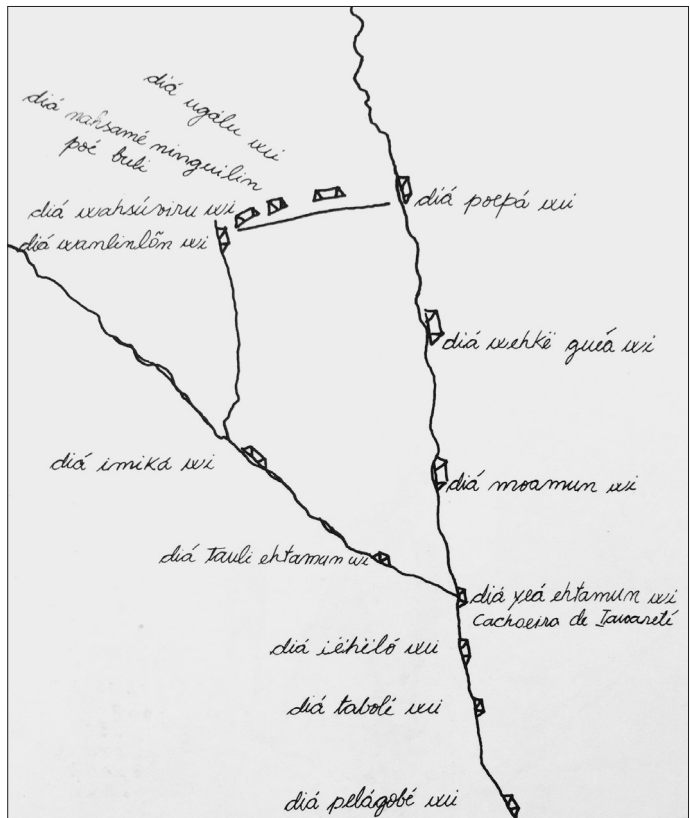 diá ugálu wii
diá nahsamé ninguilin
poé buli
diá wahsúviru wi
diá wanlinlõn wi
diá poepá wii
diá wehkë guéa wi
diá imiká wi
diá moamun wi
diá tauli ehtamun wi
diá yeá ehtamun wi
Cachoeira de Iauareté
diá iëhëló wii
diá tabolé wii
diá pelágobé wii